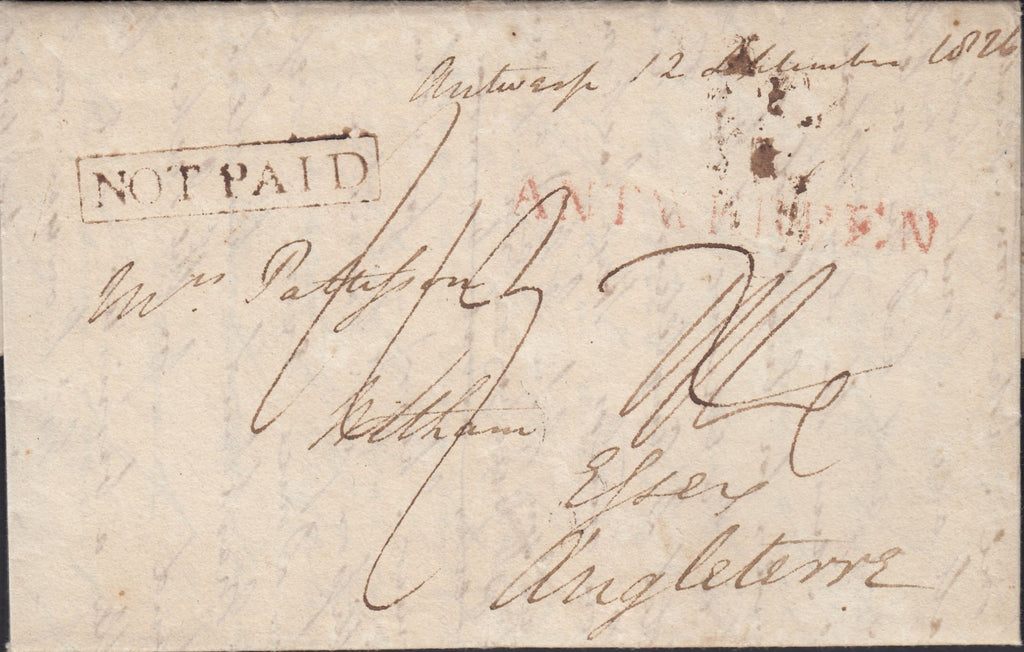 Antwerp 12 September 1826
NOT PAID
ANTWERPEN
Mrs. Pattisson
Witham
Essex
Angleterre